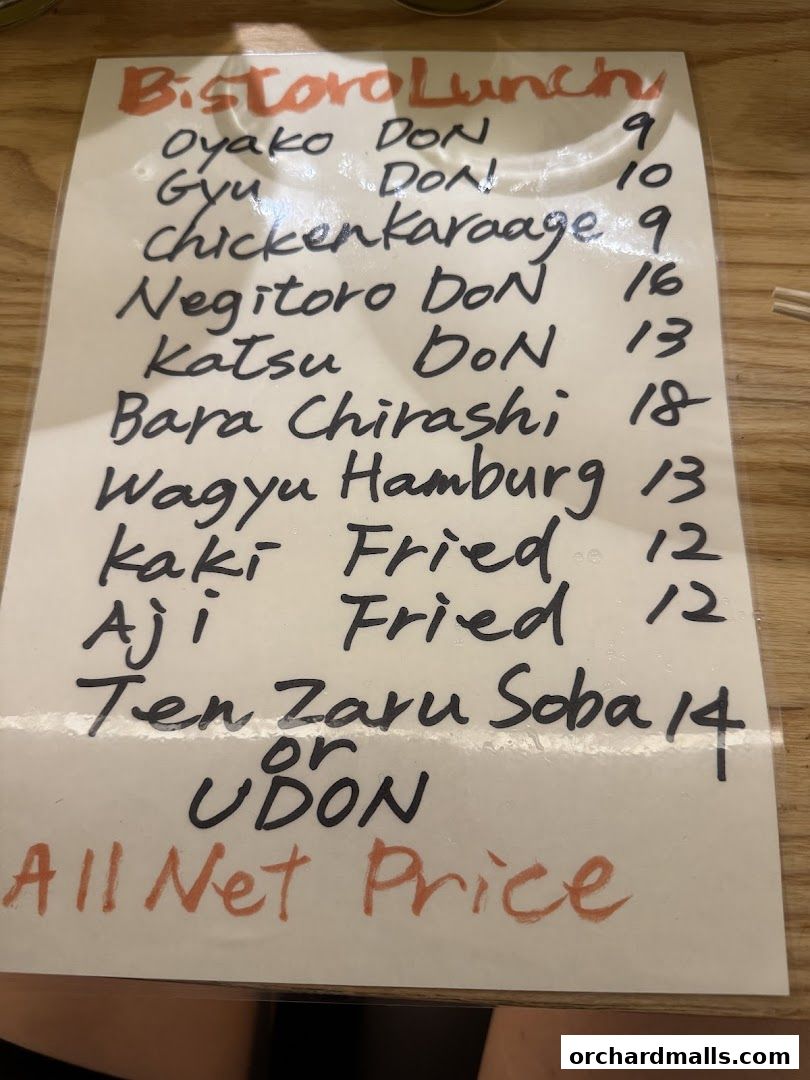 Bistoro Lunch
Oyako DoN 9
Gyu DoN 10
ChickenKaraage 9
Negitoro DoN 16
Katsu DoN 13
Bara Chirashi 18
Wagyu Hamburg 13
Kaki Fried 12
Aji Fried 12
Ten Zaru Soba 14
or
UDON
All Net Price
orchardmalls.com